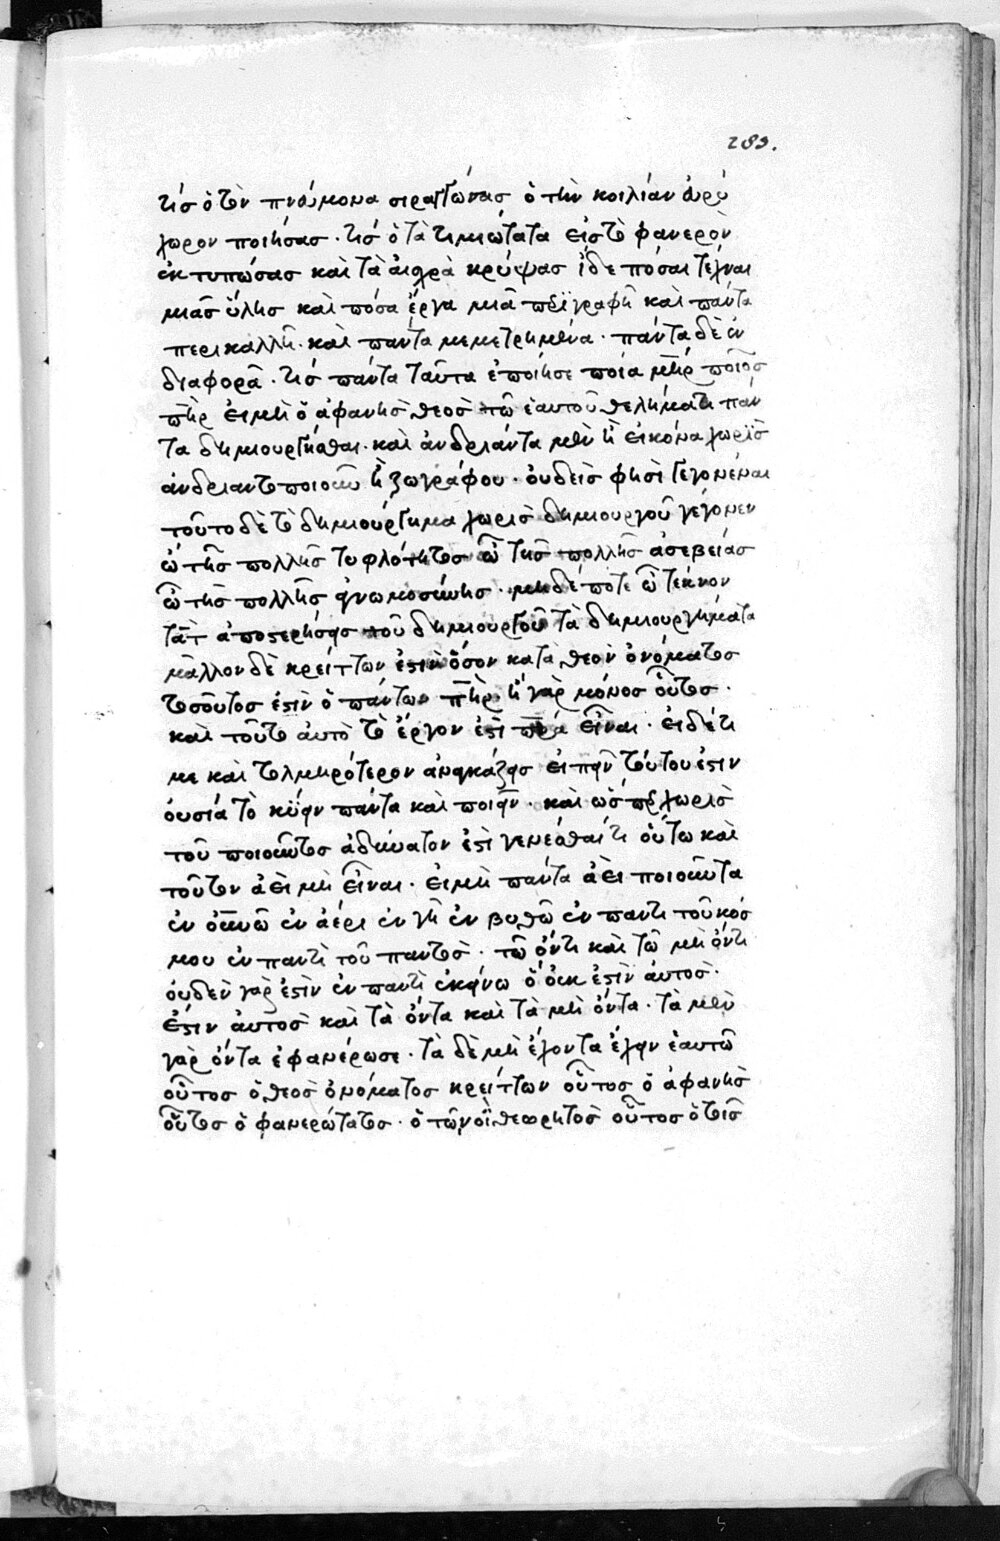 289.
τίς ὁ τὸν πνεύμονα σιραγγώσας ὁ τὴν κοιλίαν εὐρύ
χωρον ποιήσας · τίς ὁ τὰ τιμιώτατα εἰς τὸ φανερὸν
ἐκτυπώσας καὶ τὰ αἰσχρὰ κρύψας ἴδε πόσαι τέχναι
μιᾶς ὕλης καὶ πόσα ἔργα μιᾶ περϊγραφῆ καὶ πάντα
περικαλλῆ · καὶ πάντα μεμετρημένα · πάντα δὲ ἐν
διαφορᾶ · τίς πάντα ταῦτα ἐποίησε ποία μῆηρ ποῖος
πῆηρ εἰ μὴ ὁ ἀφανὴς θεὸς τῶ ἑαυτοῦ θελήματι πάν
τα δημιουργήσας · καὶ ἀνδριάντα μὲν ἢ εἰκόνα χωρὶς
ἀνδριαντοποιοῦ ἢ ζωγράφου · οὐδεὶς φησὶ γεγονέναι
τοῦτο δὲ τὸ δημιούργημα χωρὶς δημιουργοῦ γέγονεν
ὢ τῆς πολλῆς τυφλότητος ὢ τῆς πολλῆς ἀσεβείας
ὢ τῆς πολλῆς ἀγνωμοσύνης · μηδέ ποτε ὦ τέκνον
τὰτ ἀποστερήσης τοῦ δημιουργοῦ τὰ δημιουργήματα
μᾶλλον δὲ κρείττων ἐστὶν ὅσον κατὰ θεὸν ὀνόματος
τοσοῦτος ἐστὶν ὁ πάντων πῆηρ · ἢ γὰρ μόνος οὗτος ·
καὶ τοῦτο αὐτὸ τὸ ἔργον ἐστὶ πρα εἶναι · εἰ δέ τι
με καὶ τολμηρότερον ἀναγκάζης εἰπεῖν τούτου ἐστιν
οὐσία τὸ κύειν πάντα καὶ ποιεῖν · καὶ ὡς περ χωρὶς
τοῦ ποιοῦντος ἀδύνατον ἐστὶ γενέσθαι τι οὕτω καὶ
τοῦτον ἀεὶ μὴ εἶναι · εἰ μὴ πάντα ἀεὶ ποιοῦντα
ἐν οὐνῶ ἐν ἀέρι ἐν γῆ ἐν βυθῶ ἐν παντι τοῦ κόσ
μου ἐν παντὶ τοῦ παντὸς · τῶ ὄντι καὶ τῶ μὴ ὄντι
οὐδὲν γὰρ ἐστὶν ἐν παντὶ ἐκείνω ὃ οὐκ ἐστὶν αὐτὸς ·
ἔστιν αὐτὸς καὶ τὰ ὄντα καὶ τὰ μὴ ὄντα · τὰ μὲν
γὰρ ὄντα ἐφανέρωσε · τὰ δὲ μὴ ἔχοντα ἔχειν ἑαυτῶ
οὗτος ὁ θεὸς ὀνόματος κρείττων οὗτος ὁ ἀφανὴς
οὗτος ὁ φανερώτατος · ὁ τῶ νοῒ θεωρητὸς οὗτος ὁ τοῖς